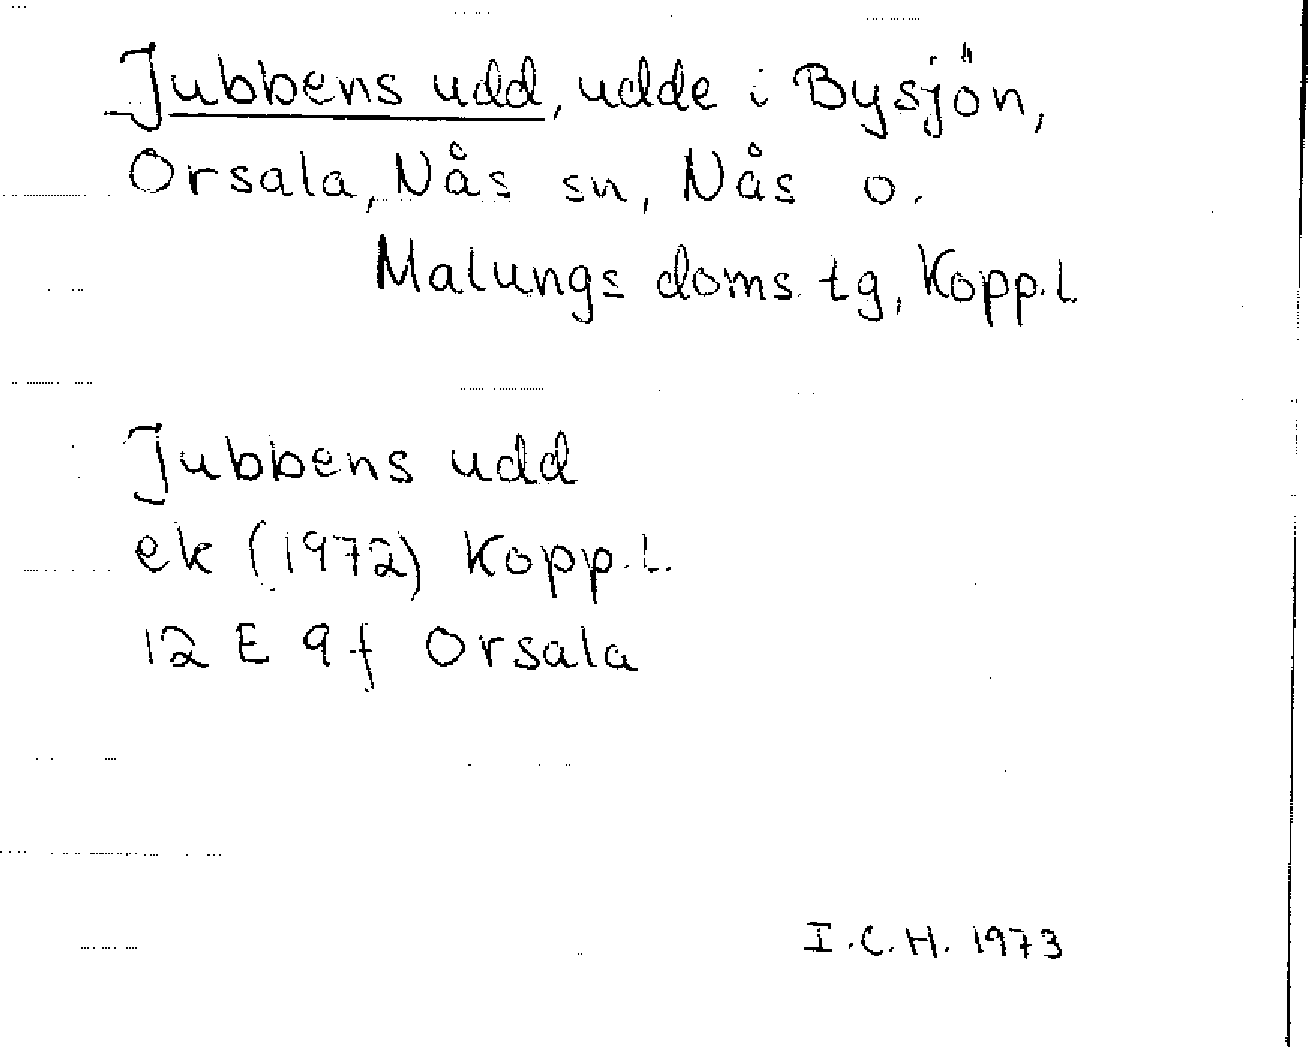 Jubbens udd, udde i Bysjön,
Orsala, Nås sn, Nås o.
Malungs doms.tg, Kopp.l.
Jubbens udd
ek (1972) Kopp.l.
12 E 9f Orsala
I.C.H. 1973